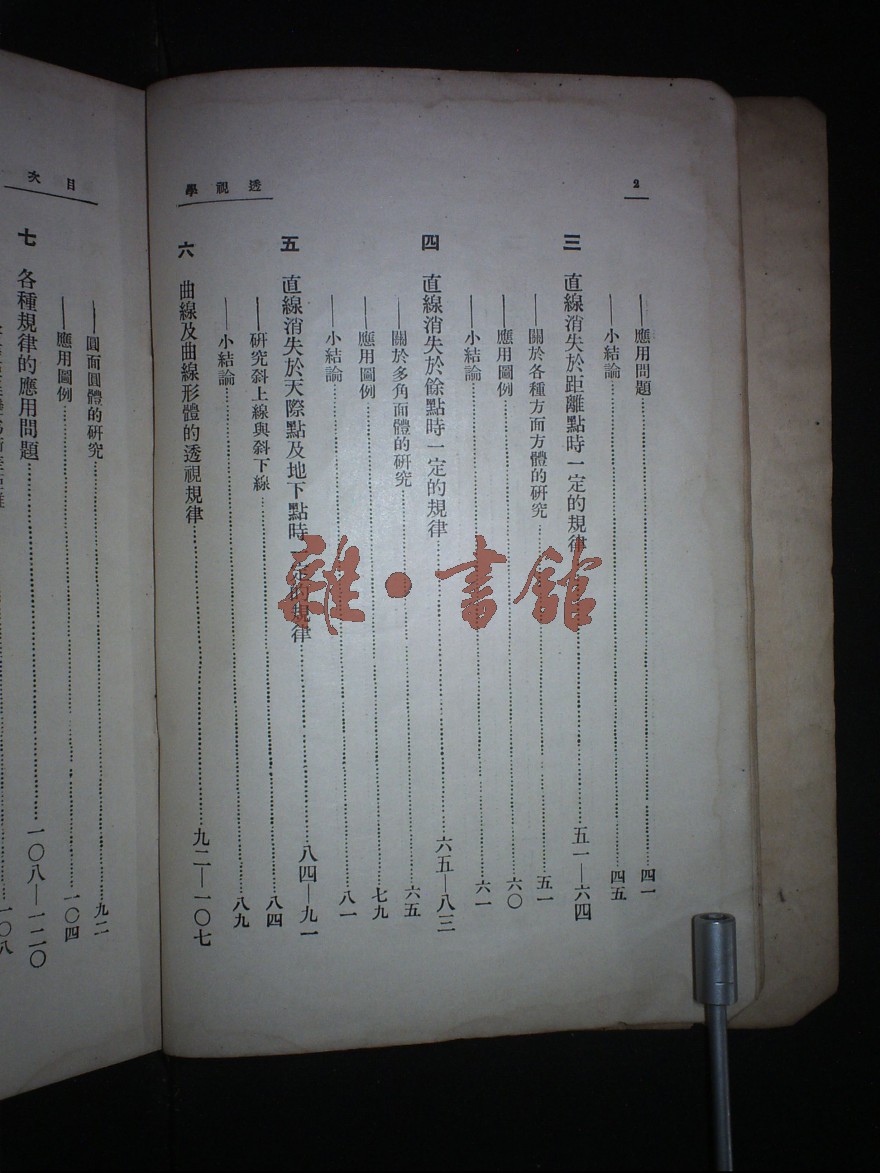 2
透視學
——應用問題……四一
——小結論……四五
三 直線消失於距離點時一定的規律……五一—六四
——關於各種方面方體的研究……五一
——應用圖例……六〇
——小結論……六一
四 直線消失於餘點時一定的規律……六五—八三
——關於多角面體的研究……六五
——應用圖例……七九
——小結論……八一
五 直線消失於天際點及地下點時一定的規律……八四—九一
——研究斜上線與斜下線……八四
——小結論……八九
六 曲線及曲線形體的透視規律……九二—一〇七
目次
——圓面圓體的研究……九二
——應用圖例……一〇四
七 各種規律的應用問題……一〇八—一二〇
一〇八
雜·書館